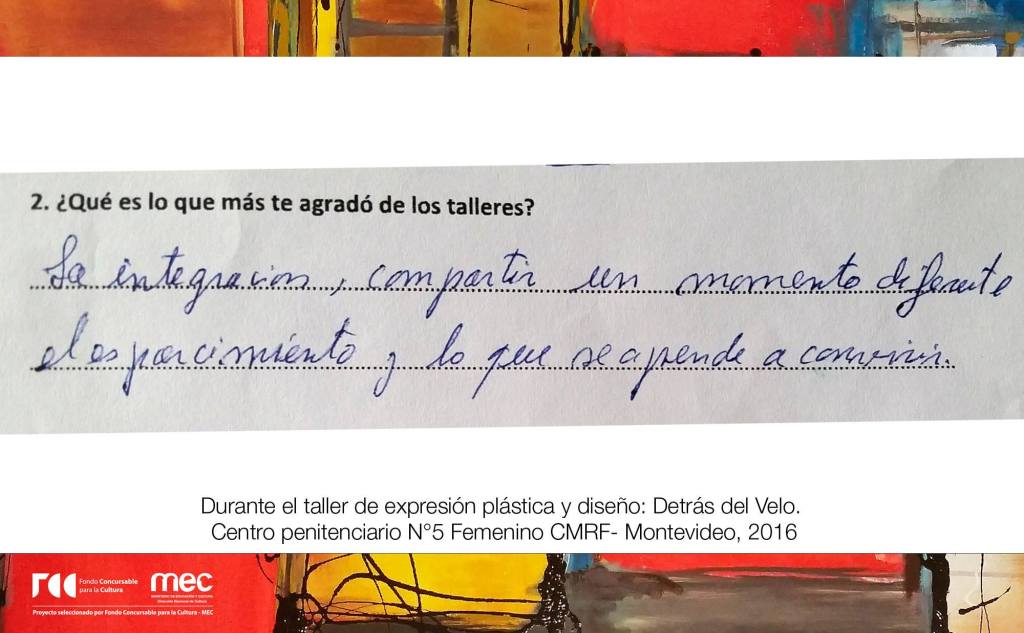 2. ¿Qué es lo que más te agradó de los talleres?
La integracion, compartir un momento diferente
el esparcimiento y lo que se aprende a convivir.
Durante el taller de expresión plástica y diseño: Detrás del Velo.
Centro penitenciario N°5 Femenino CMRF- Montevideo, 2016
Fondo Concursable
para la Cultura
mec
MINISTERIO DE EDUCACIÓN Y CULTURA
Dirección Nacional de Cultura
Proyecto seleccionado por Fondo Concursable para la Cultura - MEC